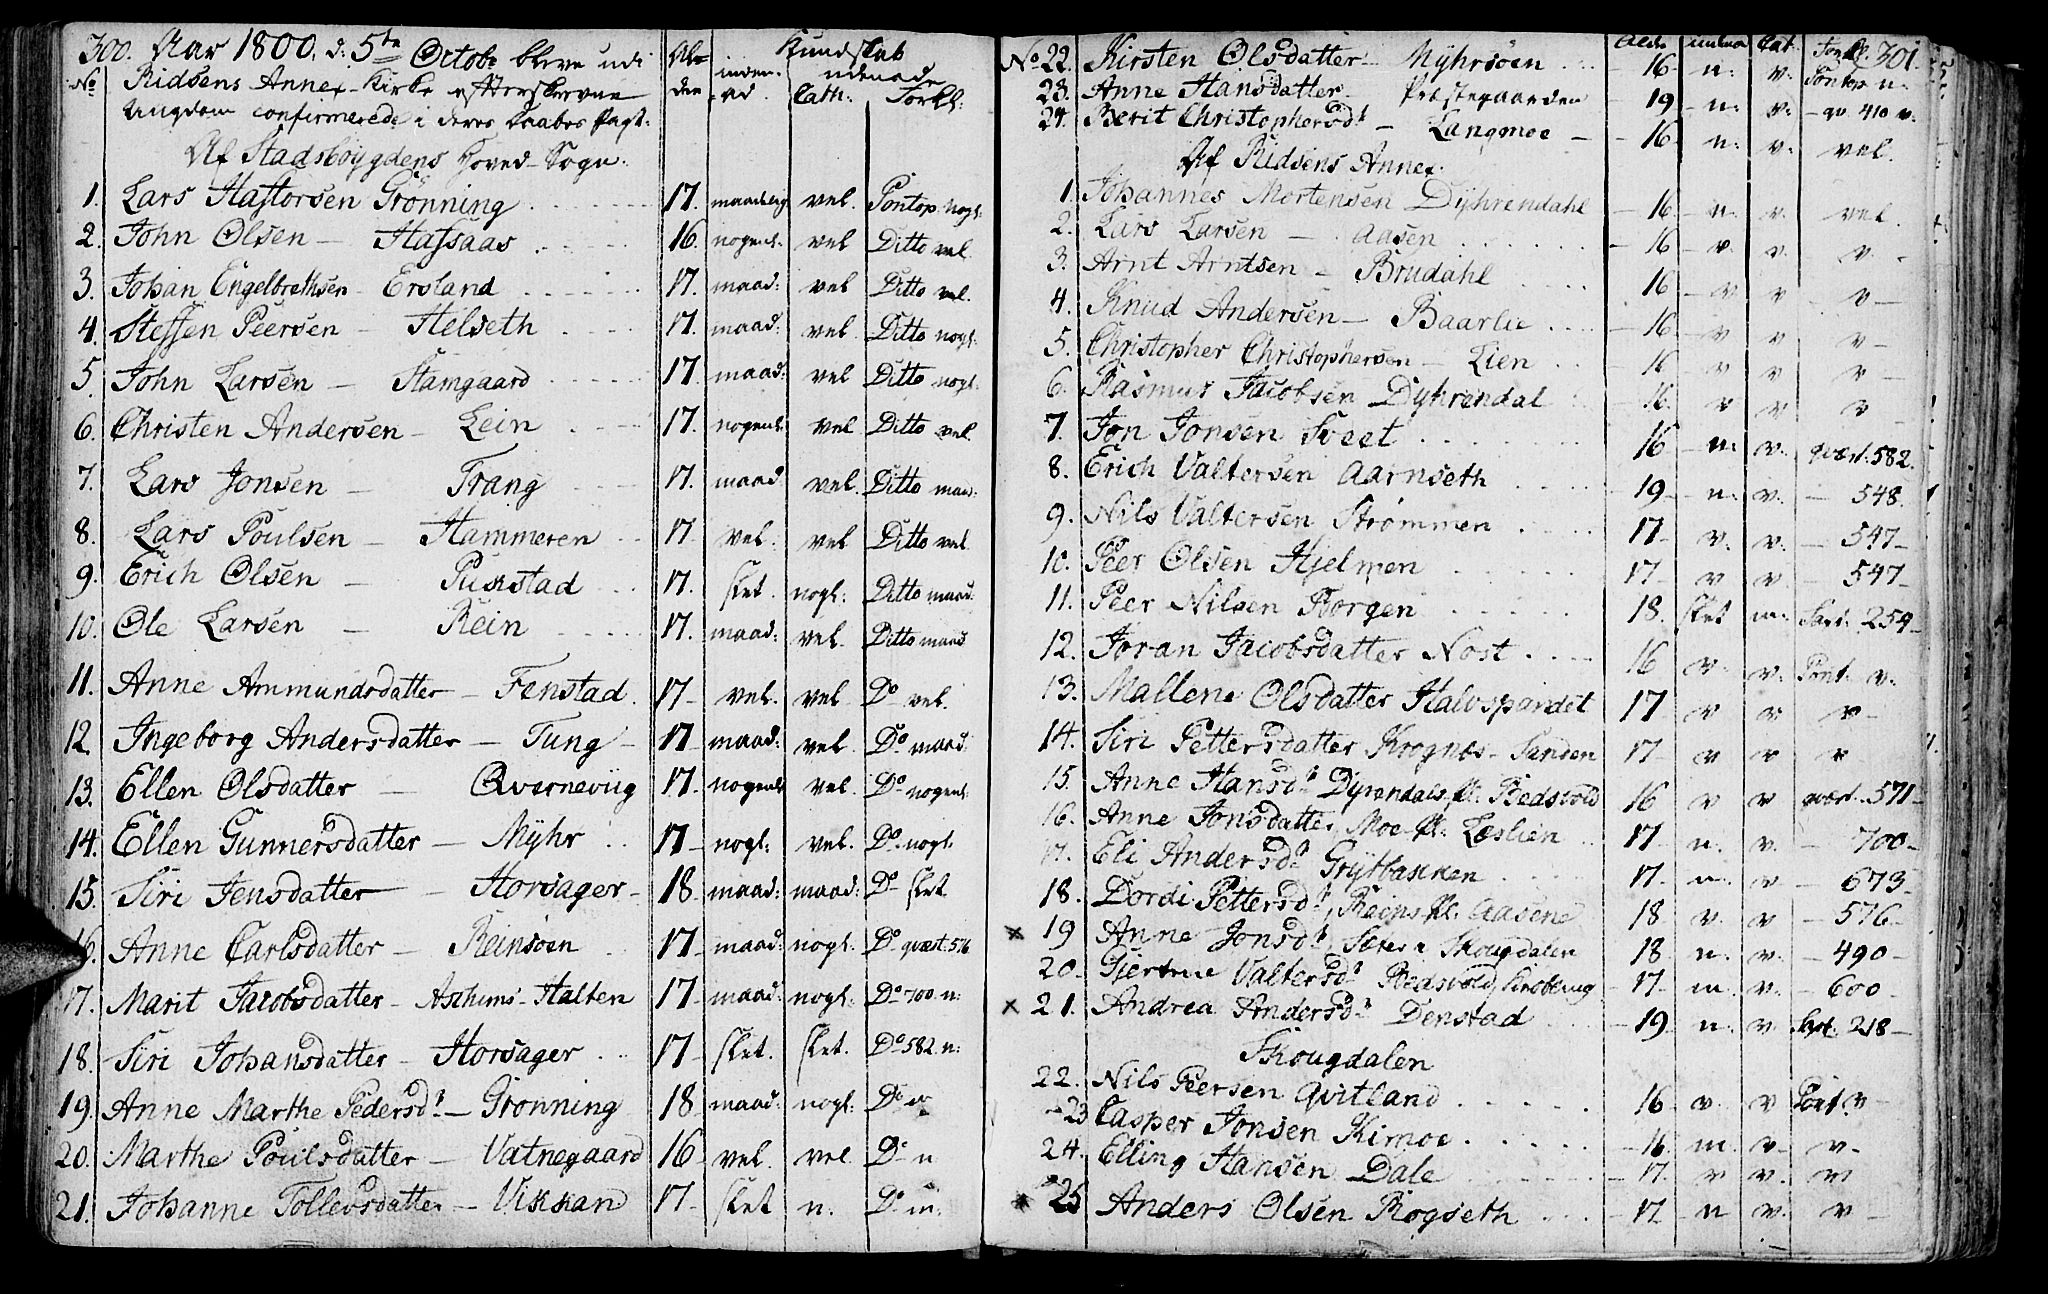 300. Aar 1800, d: 5te Octobr bleve udi
Ridsens Annex-Kirke efterskrevne
Ungdom confirmerede i deres Daabes Pagt.
Af Stadsboygdens Hoved-Sogn.
No Alder Kundskab
inden ad. udenad Cath: Forkl:
1. Lars Hastorsen Grönning 17. maadelig vel. Pontop. nogl:
2. John Olsen — Hassaas 16. nogenl: vel Ditto vel.
3. Johan Engelbrethsen Ersland 17. maad: vel Ditto vel.
4. Steffen Peersen — Helseth 17. maad: vel Ditto nogl:
5. John Larsen — Stamgaard 17. maad: vel Ditto nogl:
6. Christen Andersen — Lein 17. nogenl: vel Ditto vel.
7. Lars Jonsen — Frang 17. maad. vel. Ditto maad:
8. Lars Poulsen — Hammeren 17 vel. vel Ditto vel
9. Erich Olsen — Pukstad 17. slet. nogl: Ditto maad:
10. Ole Larsen — Rein 17. maad: vel. Ditto maad
11. Anne Ammundsdatter — Fenstad. 17 vel. vel. Do vel.
12 Ingeborg Andersdatter — Tung 17 maad: vel Do maad.
13. Ellen Olsdatter — Qverneviig 17. nogenl vel. Do nogenl.
14. Ellen Gunnersdatter — Myhr 17 nogl: vel. Do nogl.
15. Siri Jensdatter — Horsager 18 maad: maad: Do slet
16. Anne Carlsdatter — Reinsoen 17 maad: nogl: Do qvæst. 576
17. Marit Jacobsdatter — Aschims-Halten 17 maad: nogl: Do 700. n:
18. Siri Johansdatter — Horsager 17 slet. slet. Do 582. n:
19. Anne Marthe Pedersdr — Gronning 18 maad: nogl: Do n
20. Marthe Poulsdatter — Vatnegaard 16 vel. vel Do n
21. Johanne Tollevsdatter — Vikkan 17 slet n: Do m:
Alder indena Cat. Forkl. 301.
No 22. Kirsten Olsdatter Myhrsöen 16 n: v: Pontop n:
23. Anne Hansdatter Præstegaarden 19 n: v: qv. 410 v:
24. Berit Christophersdr — Langmoe 16 n: v: vel.
Af Ridsens Annex.
1. Johannes Mortensen Dyhrendahl 16 n: v: vel
2. Lars Larsen — Aasen 16 v: v: v:
3. Arnt Arntsen — Brudahl 16 v v v
4. Knud Andersen — Baarlie 16 v v v
5. Christopher Christophersen — Lien 16 v v v
6. Rasmus Jacobsen Dyhrendal 16. v v v
7. Jon Jonsen Sveet 16 n: v: qvæst. 582.
8. Erich Valtersen Aarnseth 19 n: v. 548.
9. Nils Valtersen Strömmen 17 v. v: 547
10. Peer Olsen Hjelmen 17 v v 547
11. Peer Nilsen Borgen 18. slet m: 254
12. Joran Jacobsdatter Nost 16 v. v. Pont. v.
13. Mallene Olsdatter Halvspandet 17 v v v
14. Siri Pettersdatter Krognæs-Sanden 17 v v v
15. Anne Hansdr Dyrendals Pl. Rædsvold 16 v v qvæst. 571
16. Anne Jonsdatter Moe-Pl. Leslien 17. n. v. 700
17. Eli Andersdr Grytbakken 17. m. v 673
18. Dordi Pettersdr, Reins Pl. Aasene 18 v. v 576
× 19 Anne Jonsdr, Skougdalen 18 n. v. 490
20. Giertrue Valtersdr Rædsvold, 17 m: v. 600
× 21. Andrea Andersdr Denstad 19 n: v. 218
Skougdalen
22. Nils Peersen Qvitland 16 v. v Pont. v
23 Casper Jonsen Kimoe 16 m. v. v.
24. Elling Hansen Dale 17. v v v
25 Anders Olsen Rogseth 17 n v. v